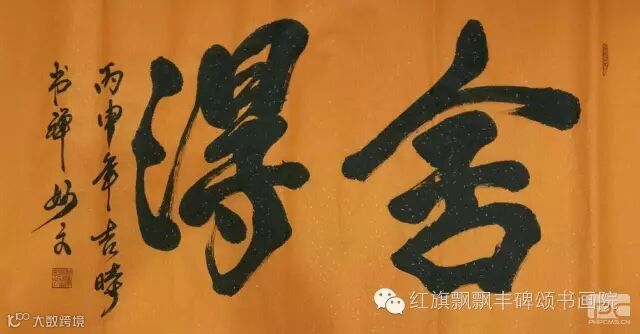 舍得
丙申年吉時
书禅妙
红旗飘飘丰碑颂书画院
大数跨境
PHPCMS.CN